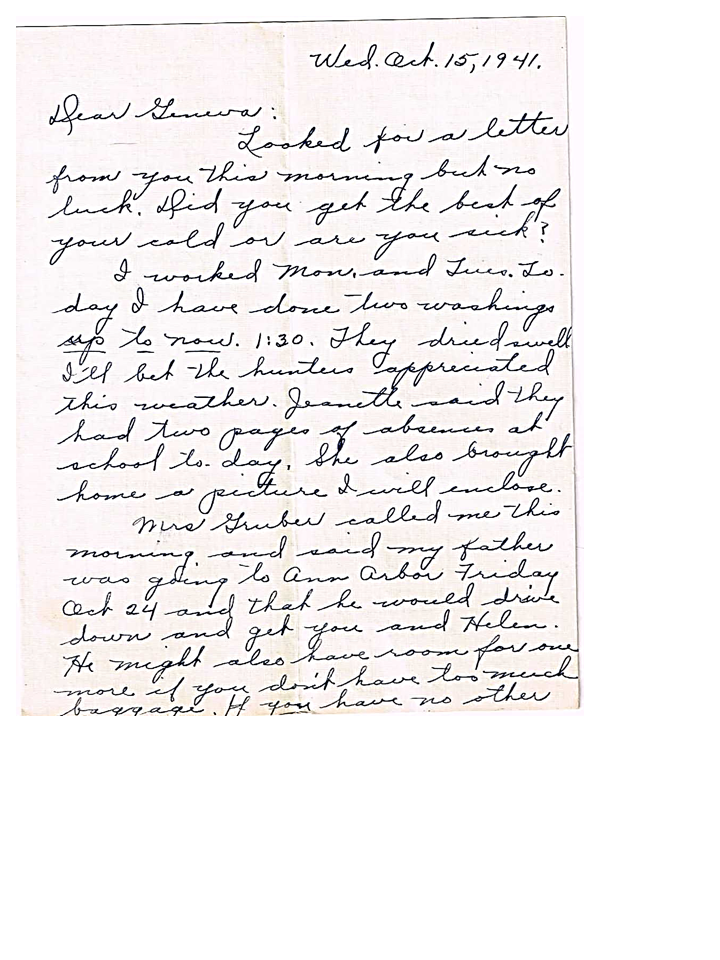 Wed. Oct. 15, 1941.
Dear Geneva:
Looked for a letter
from you this morning but no
luck. Did you get the best of
your cold or are you sick?
I worked Mon. and Tues. To-
day I have done two washings
up to now. 1:30. They dried swell
I'll bet the hunters appreciated
this weather. Jeanette said they
had two pages of absences at
school to-day. She also brought
home a picture I will enclose.
Mrs Gruber called me this
morning and said my father
was going to Ann Arbor Friday
Oct 24 and that he would drive
down and get you and Helen.
He might also have room for one
more if you don't have too much
baggage. If you have no other